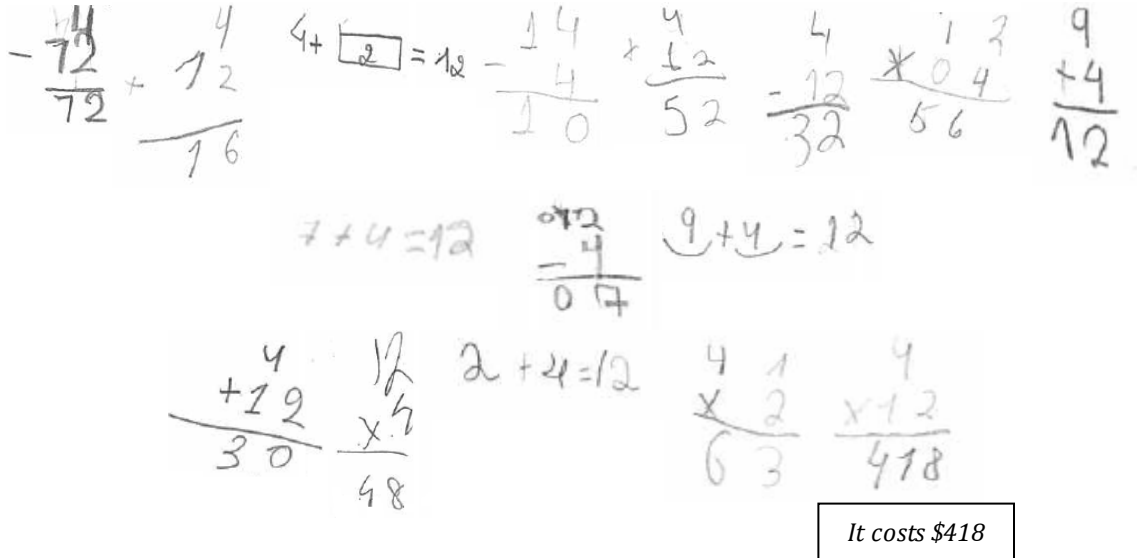 4
- 72
72
4
+ 12
16
4+ 2 = 12
14
- 4
10
4
+ 12
52
4
- 12
32
1 2
* 0 4
5 6
9
+ 4
12
7 + 4 = 12
012
- 4
0 7
9 + 4 = 12
4
+ 1 2
3 0
12
x 4
48
2 + 4 = 12
4 1
x 2
6 3
4
x 12
418
It costs $418